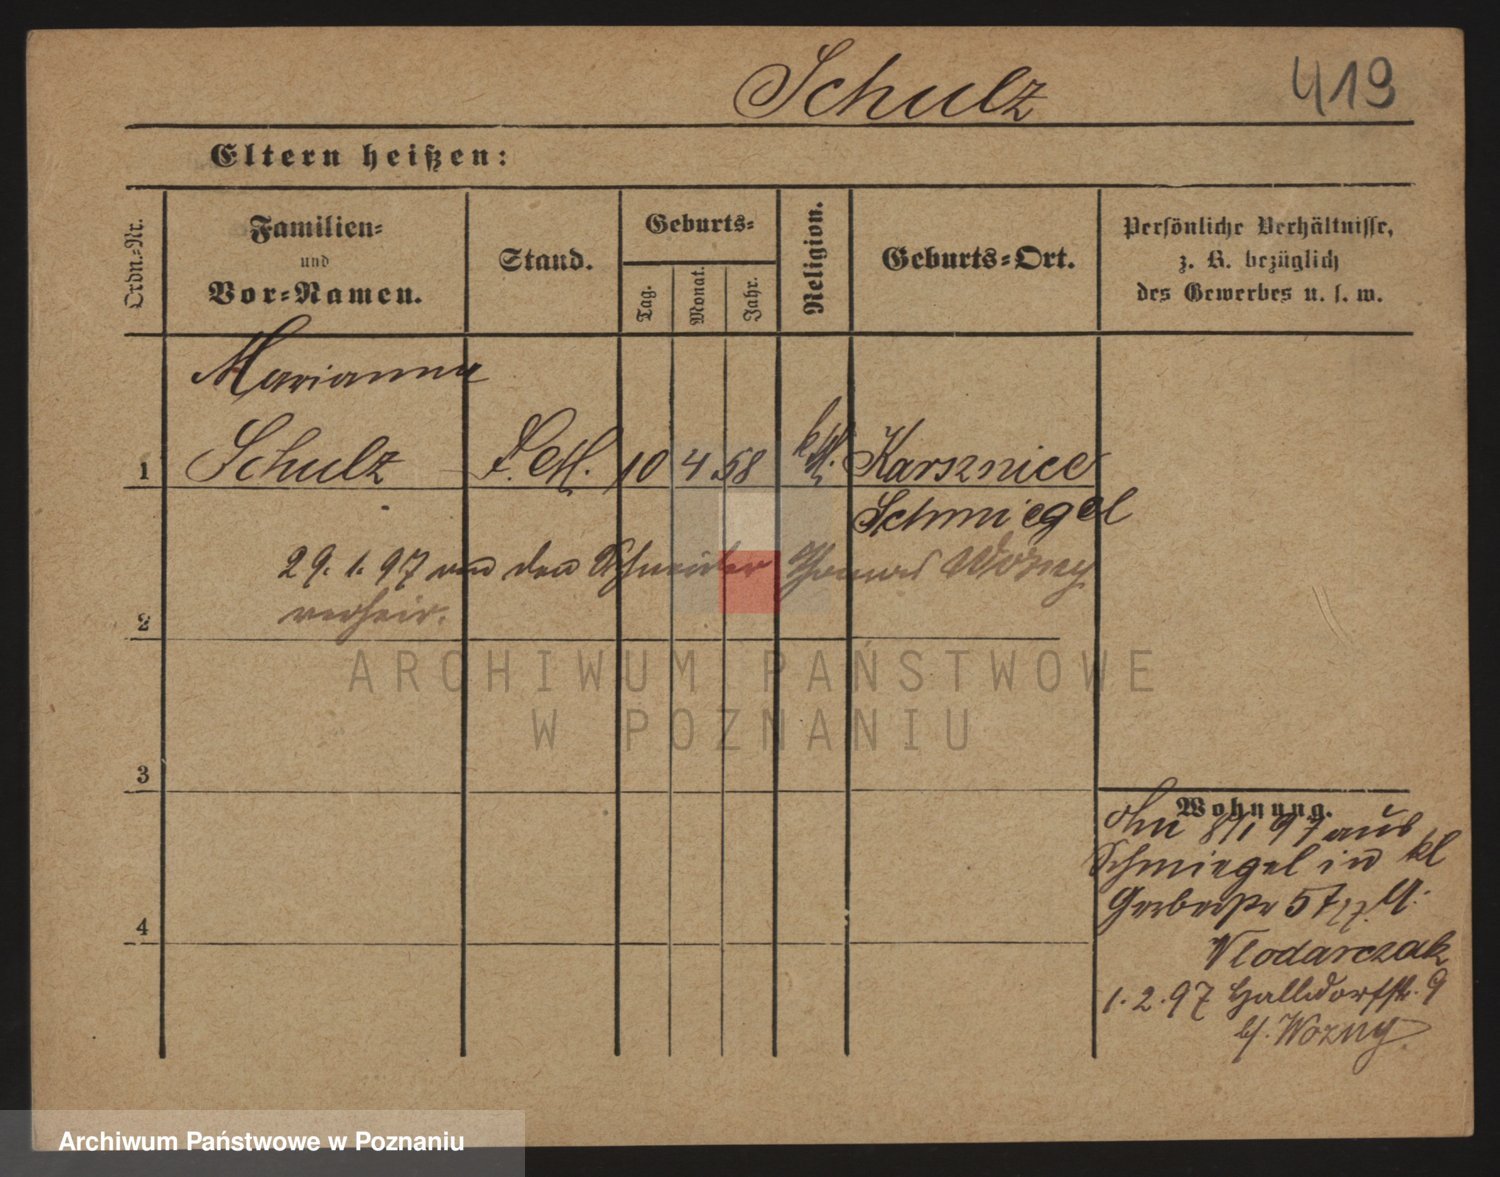 Schulz
419
Eltern heißen:
Ordn.-Nr.
Familien-
und
Vor-Namen.
Stand.
Geburts-
Tag.
Monat.
Jahr.
Religion.
Geburts-Ort.
Persönliche Verhältnisse,
z. B. bezüglich
des Gewerbes u. s. w.
Marianna
1 Schulz 10 4 58 kth. Karsznice
Schmiegel
29. 1. 97 an den Schneider Thomas Wozny
verheir.
2
3
4
Wohnung.
8/1 97 aus
Schmiegel in kl
Gerberstr 5
Wlodarczak
1. 2. 97 Halldorfstr. 9
b/. Wozny
ARCHIWUM PAŃSTWOWE
W POZNANIU
Archiwum Państwowe w Poznaniu